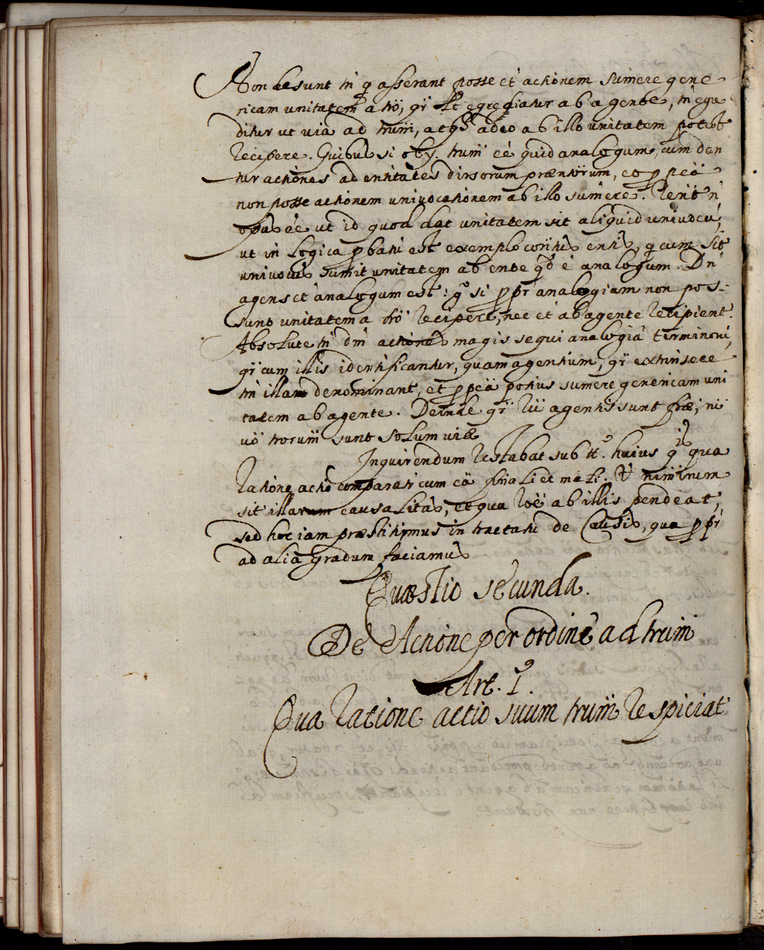 Non desunt tn̄ q asserant posse et actionem sumere gene-
ricam unitatem a trō, qr̄ licet egrediatur ab agente, tn̄ egre
ditur ut via ad trum̄, atq adeo ab illo unitatem potest
recipere. Quibus si obij. trum̄ eē quid analogum, cum den
tur actiones ad entitates divsorum prœntorum, et p peā
non posse actionem univocationem ab illo sumere. Rent n̄
opus eē ut id quod dat unitatem sit aliquid univocū,
ut in Logica pbati est exemplo entis, q cum sit
univocus sumit unitatem ab ente qd ē analogum. Dn̄
agens et analogum est: q si p pr analogiam non pos-
sunt unitatem a trō recipere, nec et ab agente recipient.
Absolute tn̄ dn̄ actiones magis sequi analogiā terminorū,
qr̄ cum illis identificantur, quam agentium, qr̄ extrinsece
tn̄ illam denominant, et p peā potius sumere genericam uni
tatem ab agente. Deinde qr̄ agentis sunt
vō trorum̄ sunt solum viæ
Inquirendum restabat sub tt.º huius q.is qua
ratione actio comparari cum cā et mali. Ut nimirum
sit illarum causalitas, et qua ab illis pendeat,
sed hoc iam præstitimus in tractatu de Causis, qua p pr
ad alia gradum faciamus
Quæstio secunda.
De Actione per ordinē ad trum̄
Art. 1.º
Qua ratione actio suum trum̄ respiciat